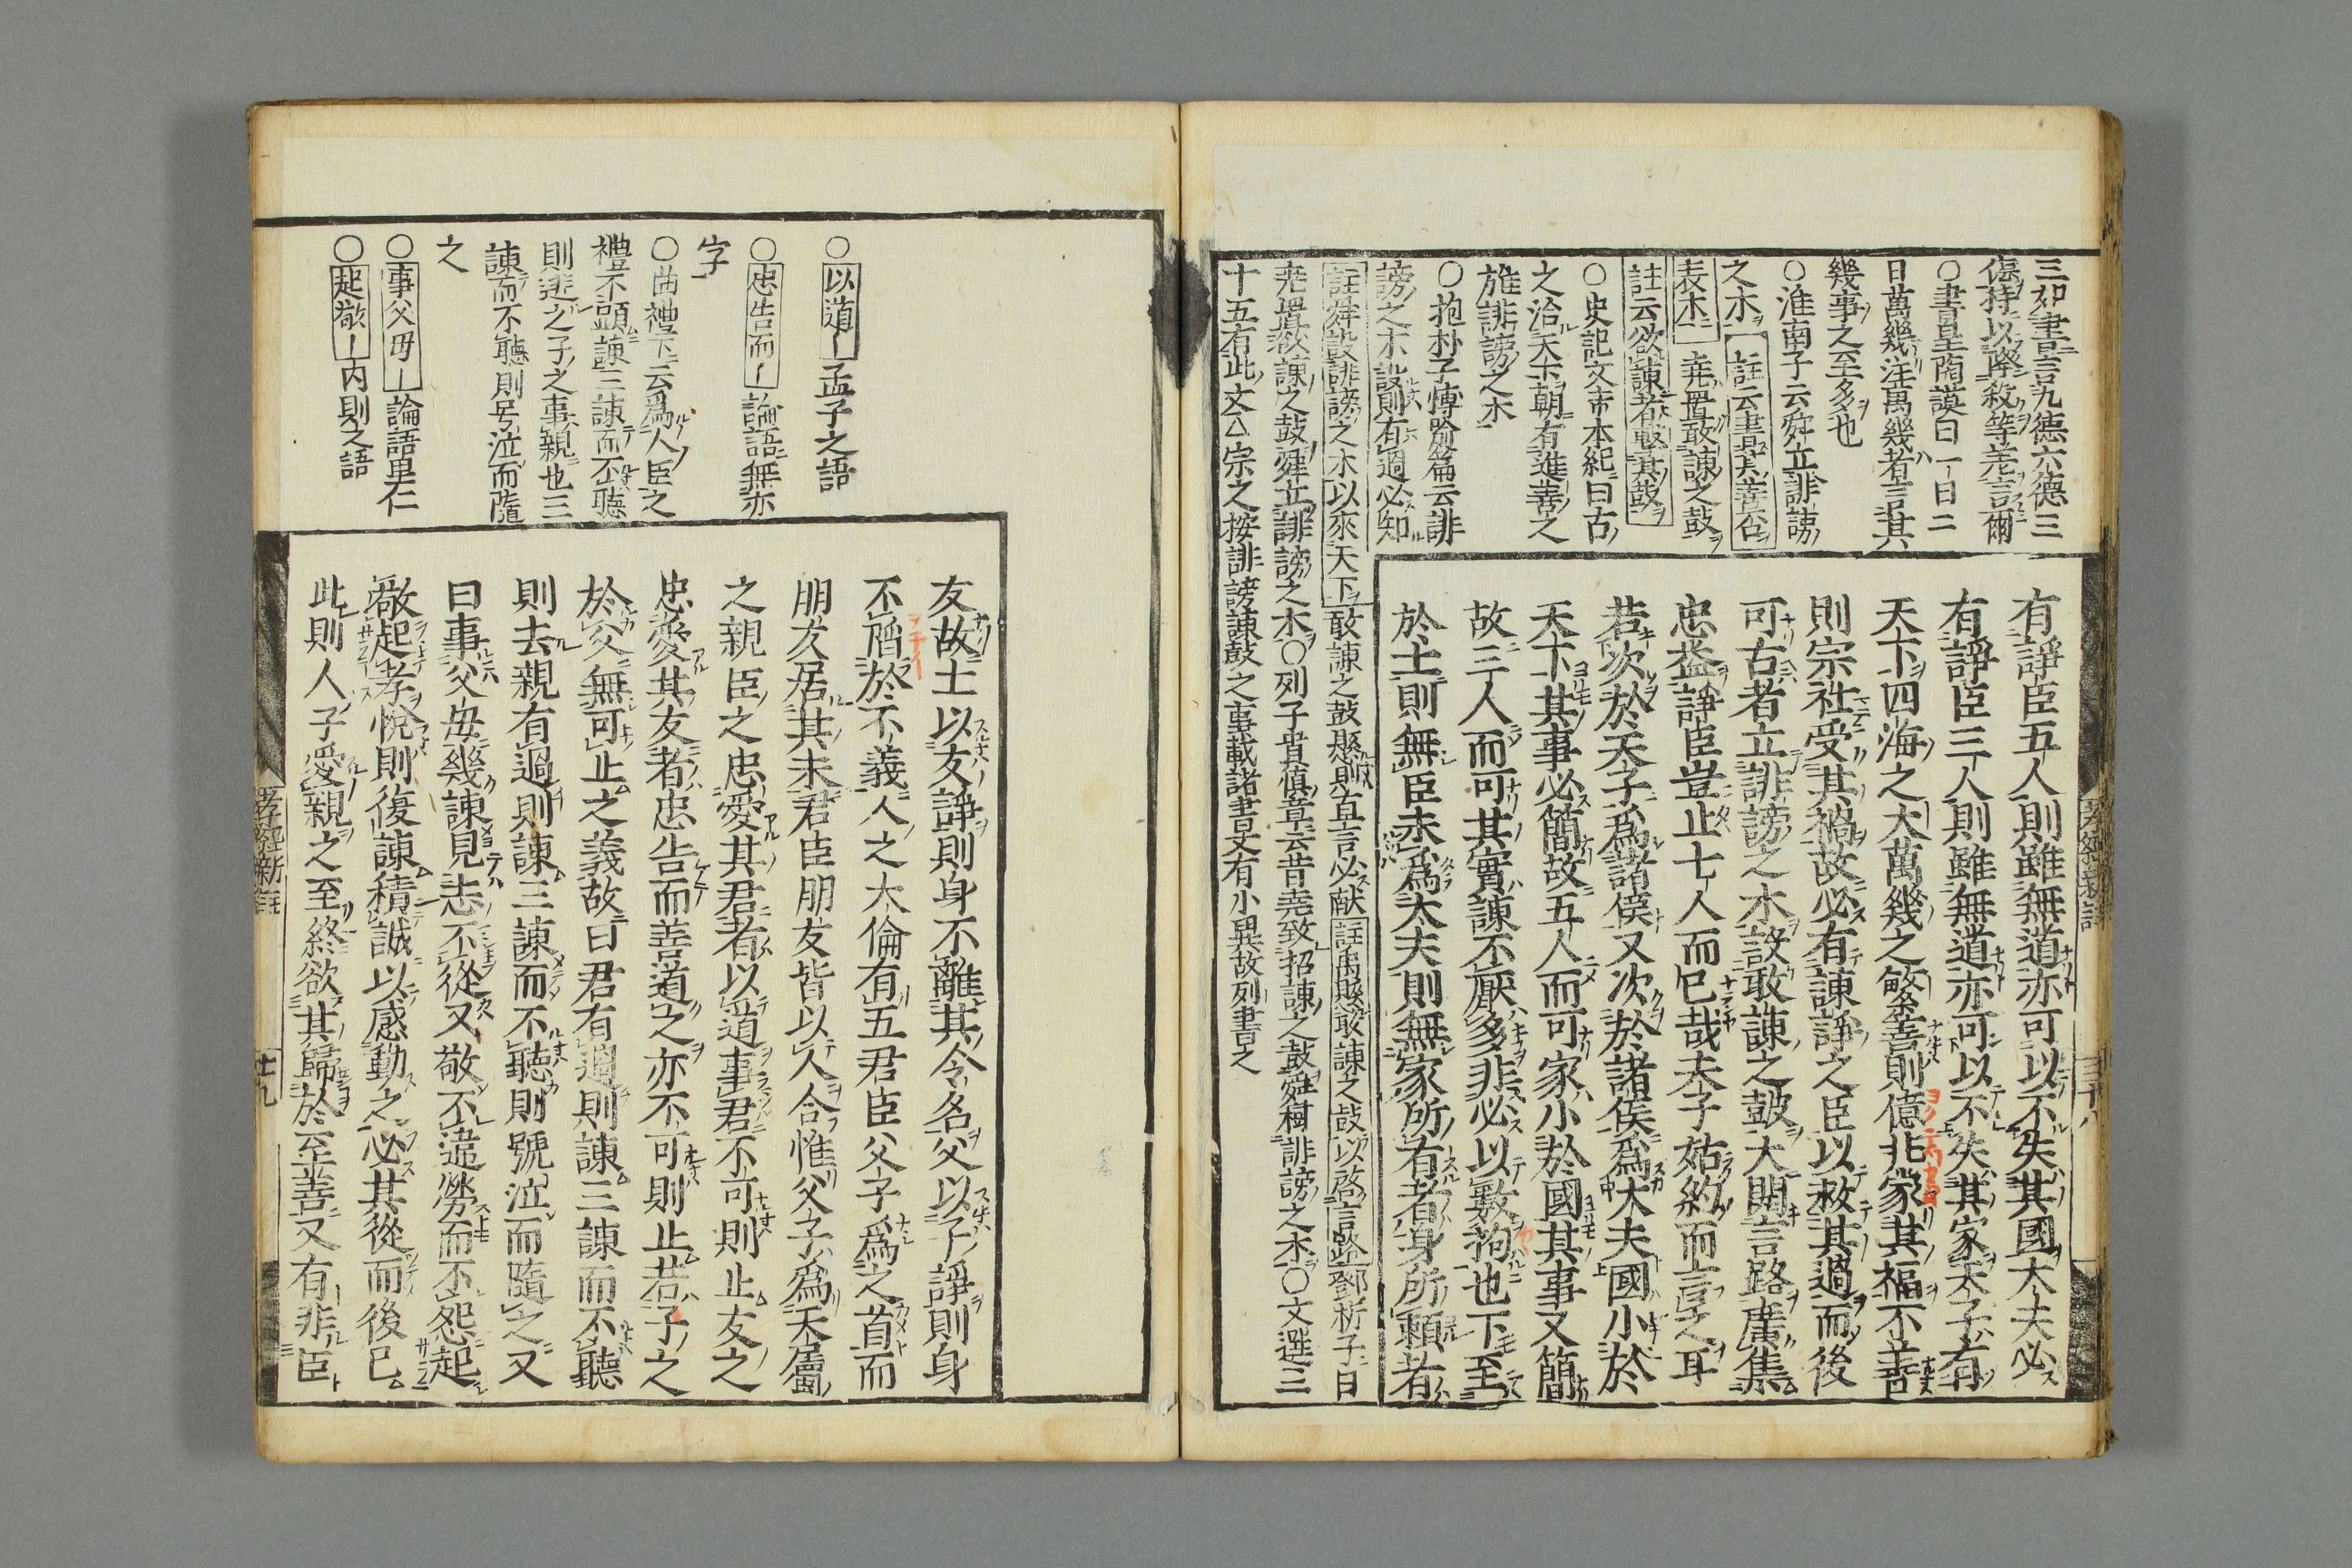 三如書言九德六德三
○書皐陶謨曰一日二
日萬幾注萬幾者言其
幾事之至多也
○淮南子云舜立誹謗
之木 註云書其善否
表木 堯置敢諫之鼓
註云欲諫者擊其鼓
○史記文帝本紀曰古
之治天下朝有進善之
旌誹謗之木
○抱朴子博喻篇云誹
謗之木設則有過必知
註舜設誹謗之木以來天下敢諫之鼓懸則直言必献註禹懸敢諫之鼓以啓言路鄧析子曰
堯置敢諫之鼓舜立誹謗之木○列子貴慎章云昔堯致招諫之鼓舜樹誹謗之木○文選三
十五有此文公宗之按誹謗諫鼓之事載諸書又有小異故列書之
有諍臣五人則雖無道亦可以不失其國大夫必
有諍臣三人則雖無道亦可以不失其家天子有
天下四海之大萬幾之繁善則億兆家其福不善
則宗社受其禍故必有諫諍之臣以救其過而後
可古者立誹謗之木設敢諫之鼓大開言路廣集
忠益諍臣豈止七人而已哉夫子姑約而言之耳
若次於天子爲諸侯又次於諸侯爲大夫國小於
天下其事必簡故五人而可家小於國其事又簡
故三人而可其實諫不厭多非必以數拘也下至
於士則無臣未爲大夫則無家所有者身所頼者
孝經新註
三十八
○以道〡孟子之語
○忠告而〡論語無亦
字
○曲禮下云爲人臣之
禮不顕諫三諫而不聽
則逃之子之事親也三
諫而不聽則号泣而隨
之
○事父毋〡論語里仁
○起敬〡内則之語
友故士以友諍則身不離其令名父以子諍則身
不䧟於不義人之大倫有五君臣父子爲之首而
朋友居其末君臣朋友皆以人合惟父子爲天屬
之親臣之忠愛其君者以道事君不可則止友之
忠愛其友者忠告而善道之亦不可則止若子之
於父無可止之義故曰君有過則諫三諫而不聽
則去親有過則諫三諫而不聽則號泣而隨之又
曰事父毋幾諫見志不從又敬不違勞而不怨起
敬起孝悅則復諫積誠以感動之必其從而後已
此則人子愛親之至終欲其歸於至善又有非臣
孝經新註
卅九